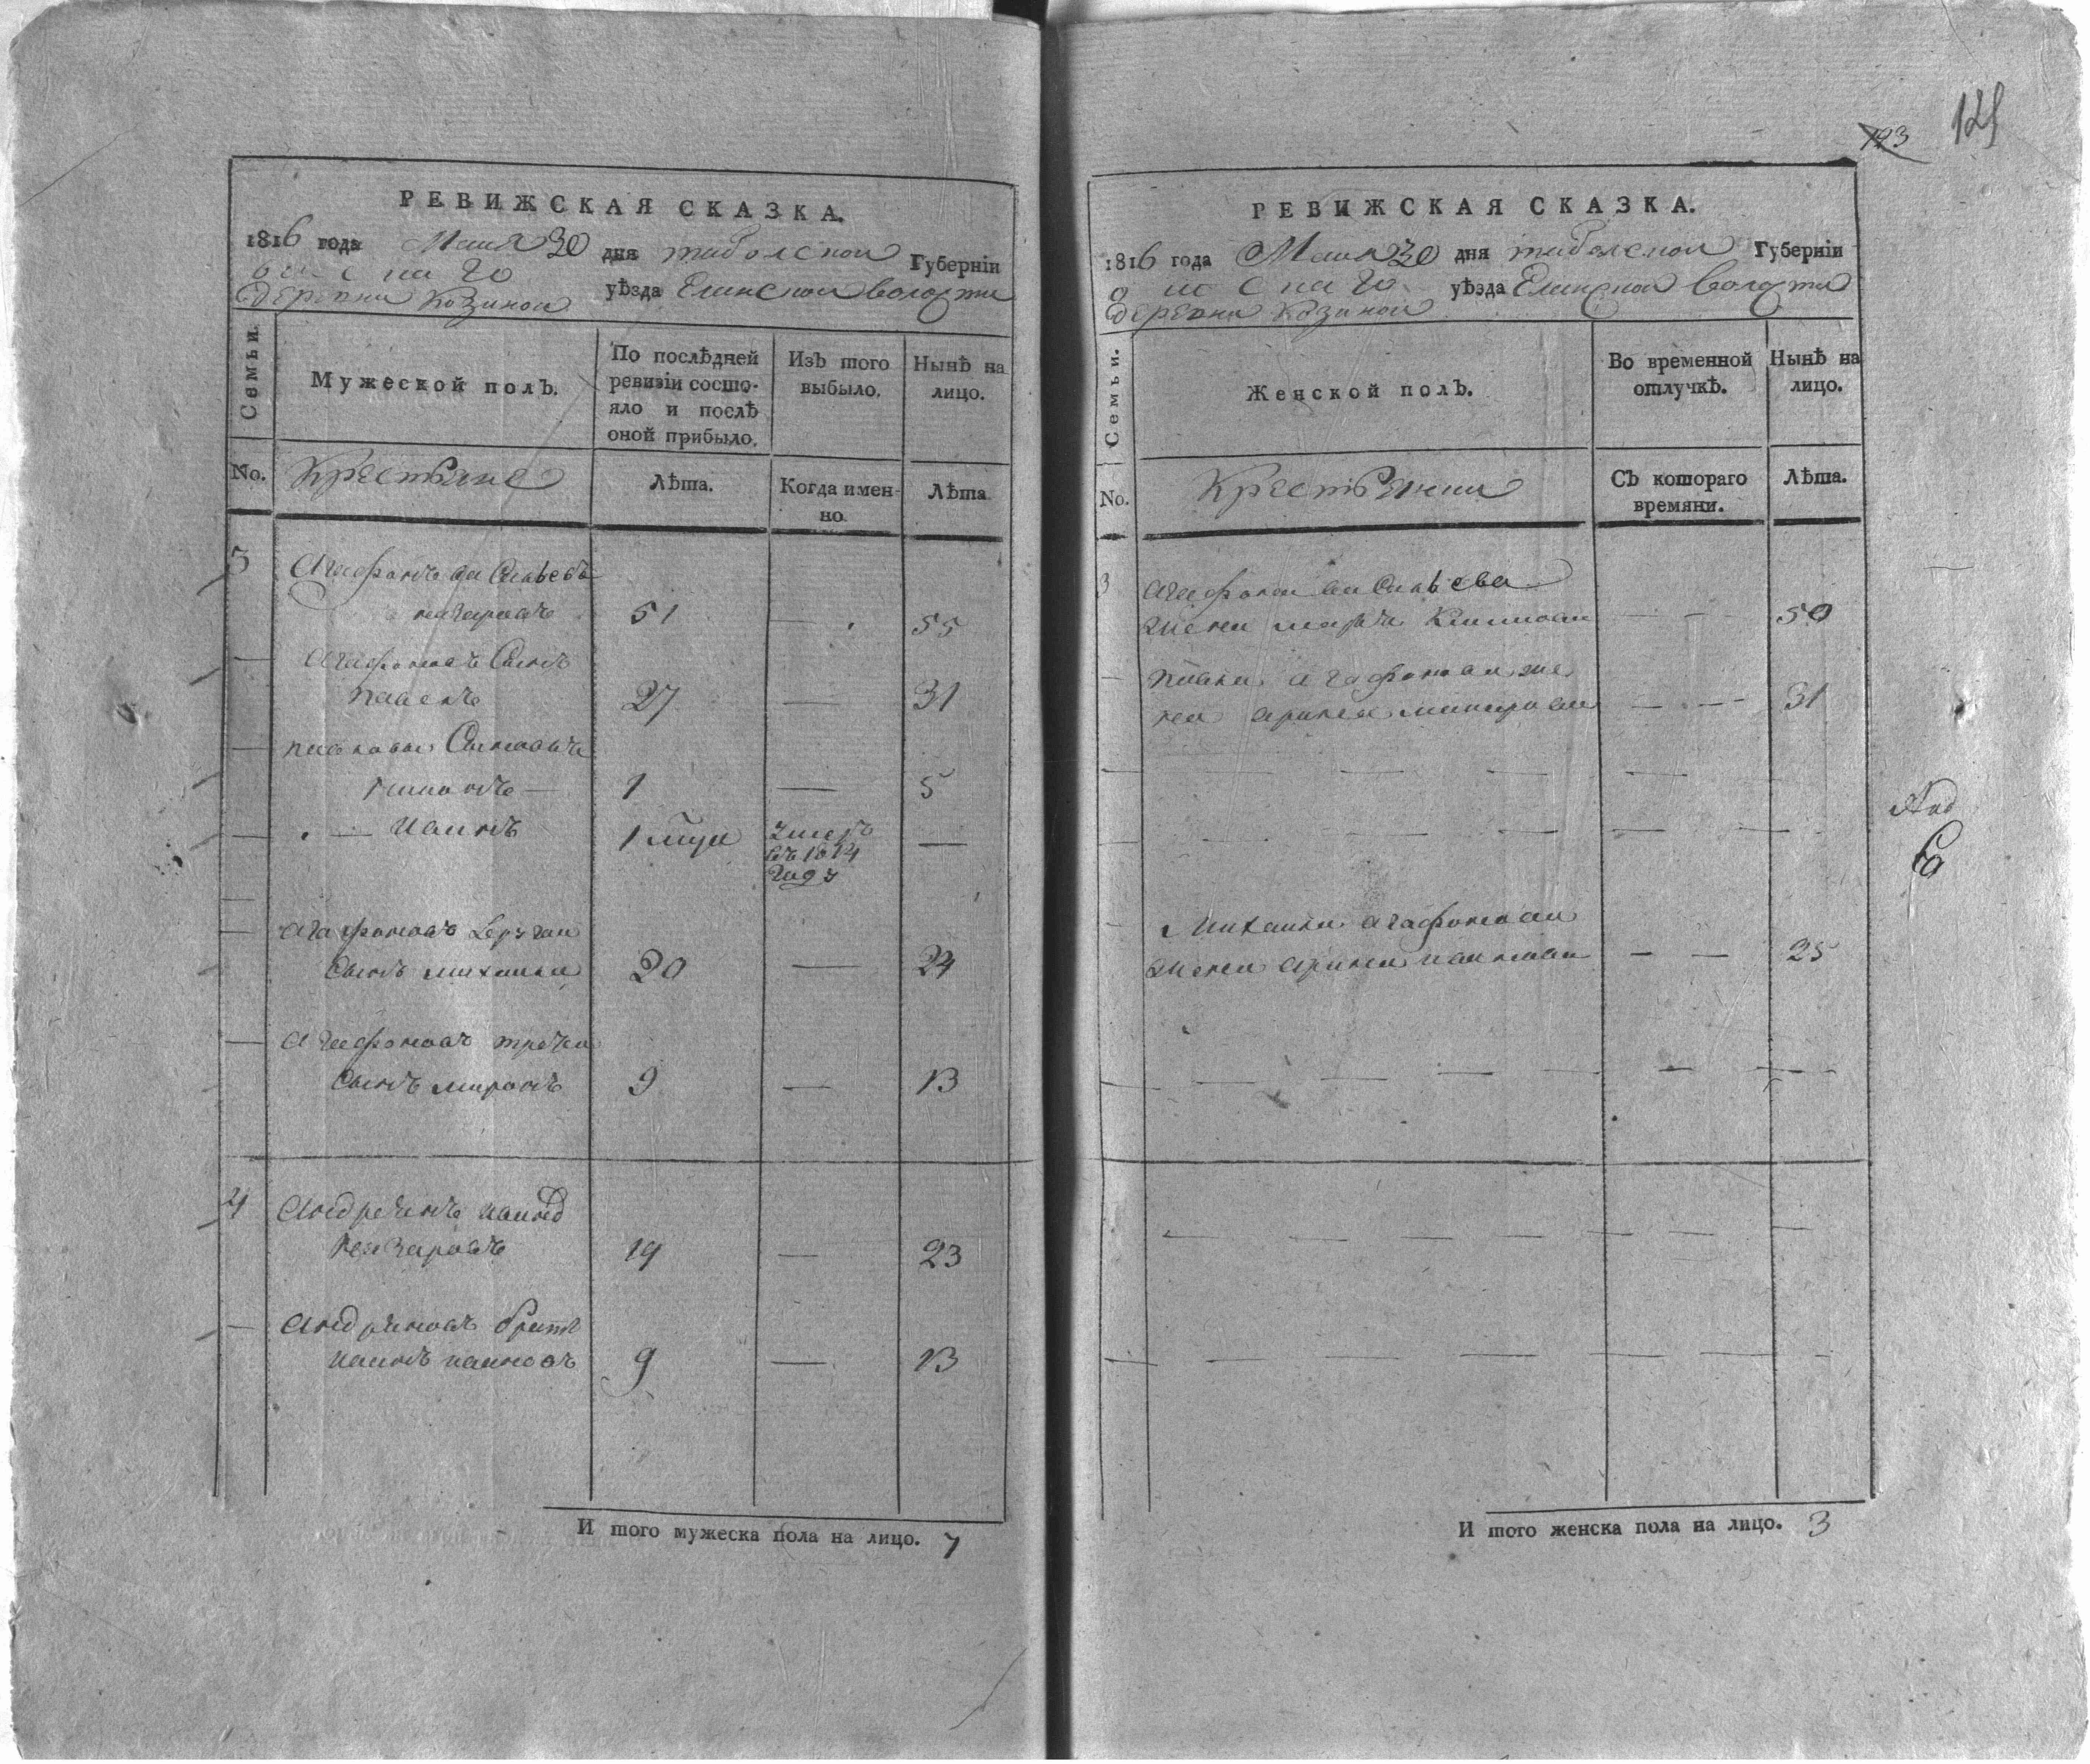 РЕВИЖСКАЯ СКАЗКА.
1816 года Маия 30 дня таболской Губерніи
омскаго уѣзда Еланской волости
деревни Козиной
Семьи.
Мужеской полЪ.
По послѣдней ревизіи состояло и послѣ оной прибыло.
ИзЪ того выбыло.
Нынѣ на лицо.
No.
Крестьяне
Лѣта.
Когда именно.
Лѣта
3
Агафонъ васильевъ
51 — 55
Агафоновъ Сынъ
Павелъ 27 — 31
Павловы Сыновья
1 — 5
— Иванъ 1 умеръ въ 1814 году —
Агафоновъ другой
Сынъ михаила 20 — 24
Агафоновъ третей
Сынъ миронъ 9 — 13
4
Иванов
19 — 23
братъ
иванъ ивановъ 9 — 13
И того мужеска пола на лицо. 7
123
РЕВИЖСКАЯ СКАЗКА.
1816 года Маия 30 дня таболской Губерніи
омскаго уѣзда Еланской волости
деревни Козиной
Семьи.
Женской полЪ.
Во временной отлучкѣ.
Нынѣ на лицо.
No.
Крестьянки
СЪ котораго времяни.
Лѣта.
3
агафона васильева
жена — — 50
Павла агафонова же
на арина — — 31
Михаила агафонова
жена арина иванова — — 25
И того женска пола на лицо. 3